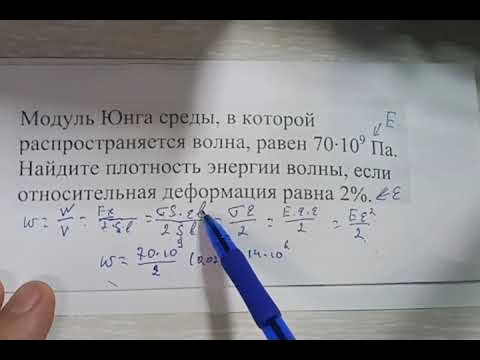 Модуль Юнга среды, в которой E
распространяется волна, равен 70·10⁹ Па.
Найдите плотность энергии волны, если
относительная деформация равна 2%. ε
w = W/V = Fx/2Sl = σS·εl/2Sl = σε/2 = E·ε·ε/2 = Eε²/2
w = 70·10⁹/2 14·10⁶